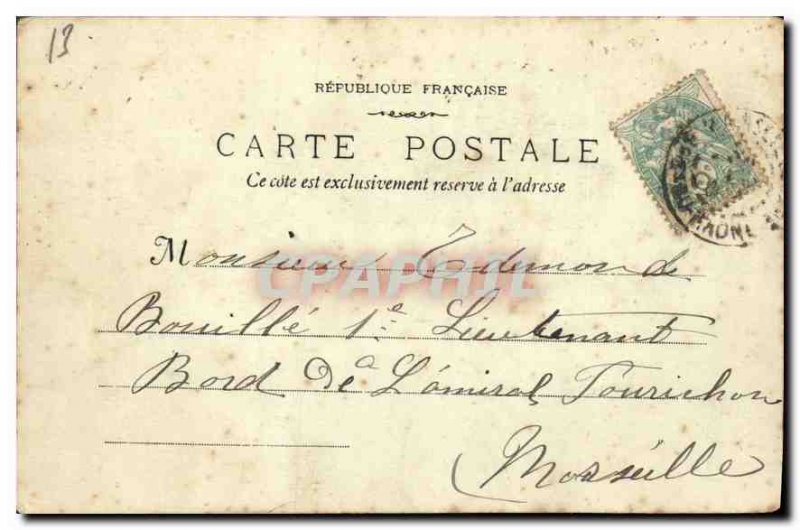 13
RÉPUBLIQUE FRANÇAISE
CARTE POSTALE
Ce côte est exclusivement reserve à l'adresse
Monsieur Edmond
CPAPHIL
Bouillé 1e Lieutenant
Bord De L'amiral Fourichon
Marseille
RHONE